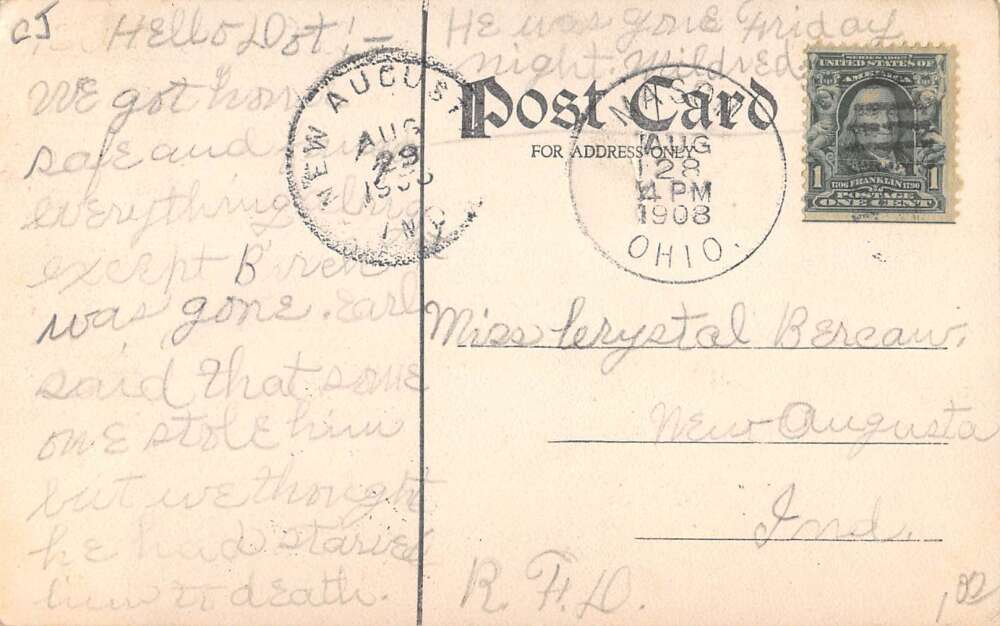 CJ
Hello Dot! —
We got home
safe and
everything
except
was gone. Earl
said that some
one stole him
but we thought
he had starved
him to death.
He was gone Friday
night. Mildred
Post Card
FOR ADDRESS ONLY
NEW AUGUSTA
AUG
29
1908
IND
NASO
AUG
28
4 PM
1908
OHIO.
SERIES 1902
UNITED STATES OF
AMERICA
1706 FRANKLIN 1790
1 POSTAGE 1
ONE CENT
Miss Crystal Bercaw.
New Augusta
Ind.
R. F. D.